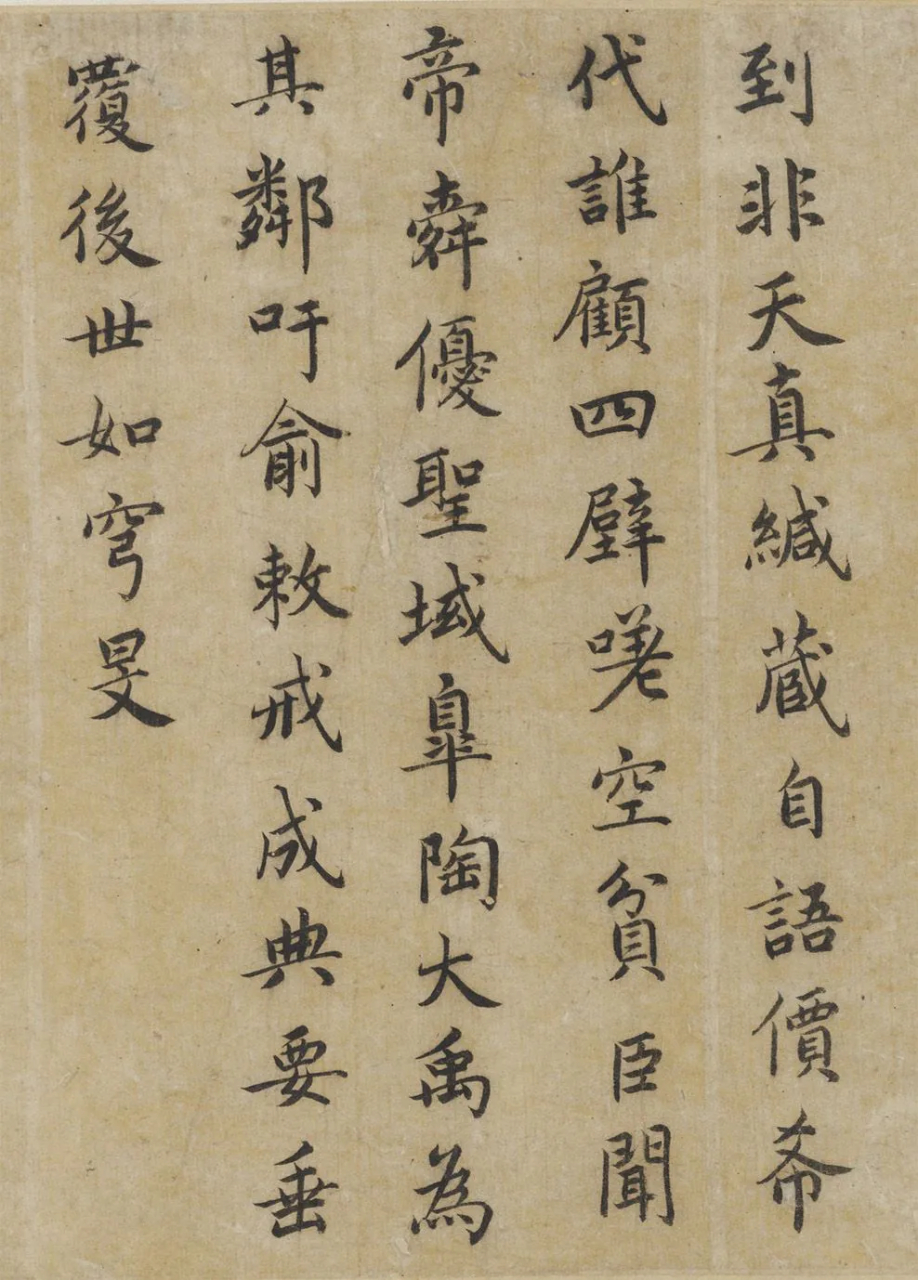 到非天真緘藏自語價希
代誰顧四壁嗟空貧臣聞
帝舜優聖域皐陶大禹為
其鄰吁俞敕戒成典要垂
覆後世如穹旻